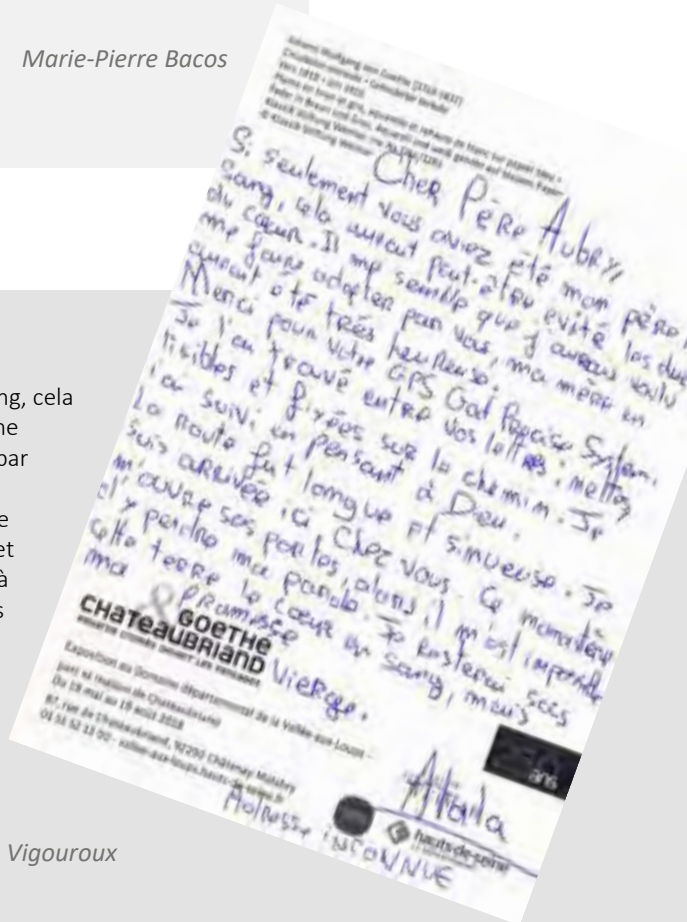 Marie-Pierre Bacos
Johann Wolfgang von Goethe (1749-1832)
Cher Père Aubry,
Si seulement vous aviez été mon père,
sang, cela aurait peut-être évité les
du cœur. Il me semble que j'aurais voulu
me faire adopter par vous, ma mère en
aurait été très heureuse.
Merci pour votre GPS God Precise System.
Je l'ai trouvé entre vos lettres,
lisibles et fixées sur le chemin. Je
l'ai suivi en pensant à Dieu.
La route fut longue et sinueuse. Je
suis arrivée ici chez vous. Ce monastère
m'ouvre ses portes, alors il m'est impossible
d'y perdre ma parole. Je resterai sous
cette terre le cœur en sang, mais
ma promesse
Vierge.
&
GOETHE
CHATEAUBRIAND
Exposition au Domaine départemental de la Vallée-aux-Loups -
parc et maison de Chateaubriand
Du 19 mai au 19 août 2018
87, rue de Chateaubriand, 92290 Châtenay-Malabry
ans
Atala
hauts-de-seine
Adresse INCONNUE
ng, cela
ne
par
e
et
à
s
Vigouroux